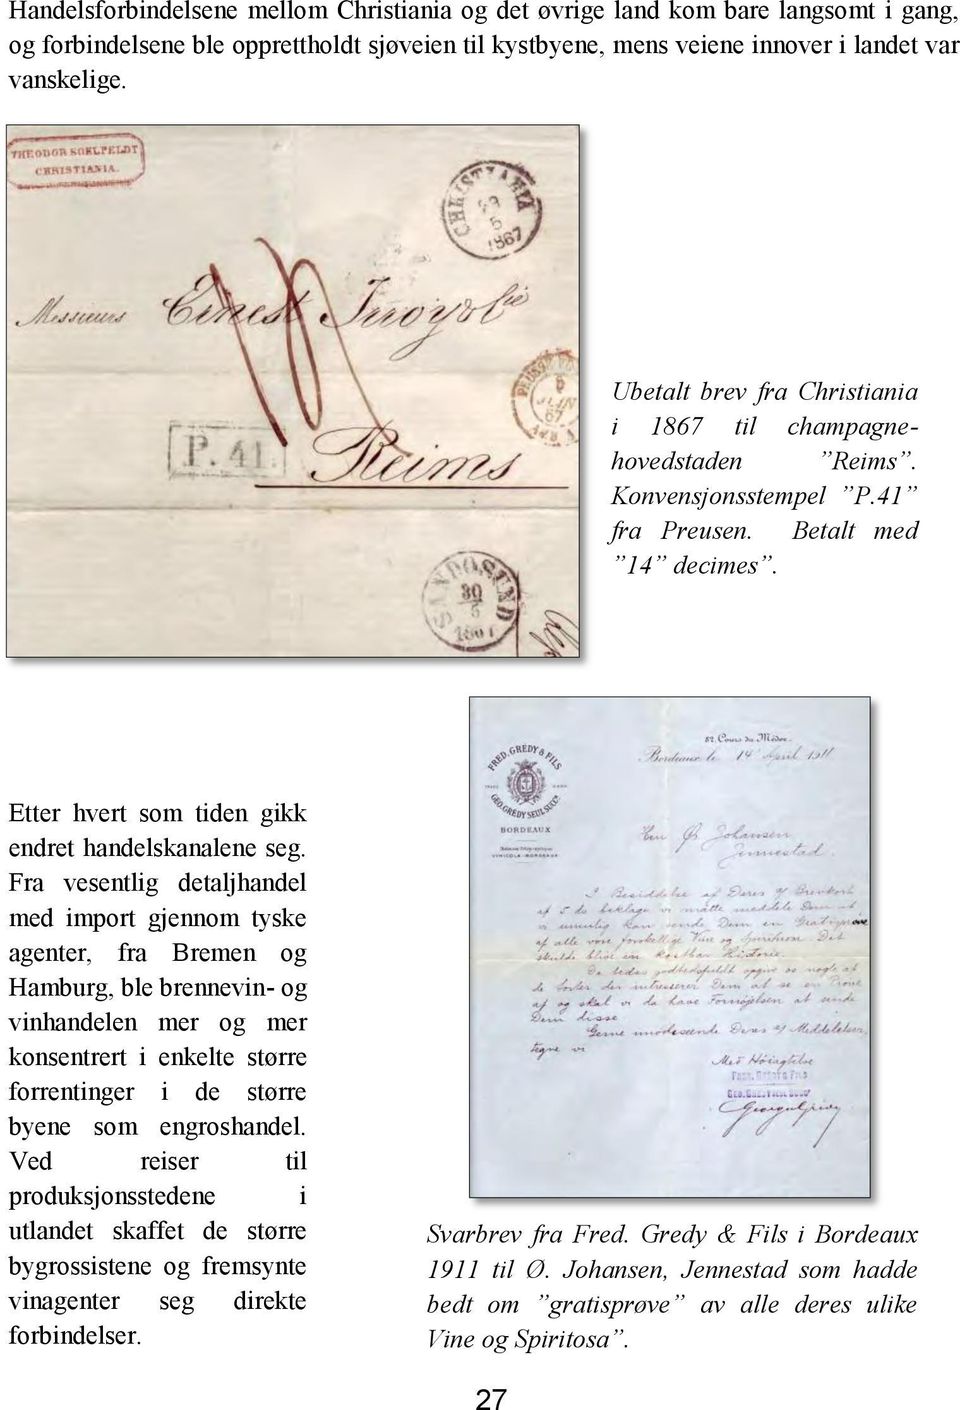 Handelsforbindelsene mellom Christiania og det øvrige land kom bare langsomt i gang,
og forbindelsene ble opprettholdt sjøveien til kystbyene, mens veiene innover i landet var
vanskelige.
THEODOR KOELPELDT
CHRISTIANIA.
CHRISTIANIA
5
1867
Messieurs Ernest Irroy & Cie
5
JUIN
67
P. 41.
Reims
SANDØSUND
30
5
1867
Ubetalt brev fra Christiania
i 1867 til champagne-
hovedstaden ”Reims”.
Konvensjonsstempel ”P.41”
fra Preusen. Betalt med
”14” decimes”.
Etter hvert som tiden gikk
endret handelskanalene seg.
Fra vesentlig detaljhandel
med import gjennom tyske
agenter, fra Bremen og
Hamburg, ble brennevin- og
vinhandelen mer og mer
konsentrert i enkelte større
forrentinger i de større
byene som engroshandel.
Ved reiser til
produksjonsstedene i
utlandet skaffet de større
bygrossistene og fremsynte
vinagenter seg direkte
forbindelser.
82, Cours du Médoc.
Bordeaux le 14 April 1911
FRED. GREDY & FILS
GEO. GREDY SEUL SUCCR
BORDEAUX
VINICOLA - BORDEAUX
Herr Ø. Johansen
Jennestad
I Besiddelse af Deres 7 Brevkort
af 5 ds beklage vi måtte meddele Dem at
vi umulig kan sende Dem en Gratisprøve
af alle vore forskellige Vine og Spirituosa. Det
skulde blive en kostbar Historie.
De bedes godhedsfuldt opgive os nogle af
de Sorter der intresserer Dem at se en Prøve
af og skal vi da have Fornøjelsen at sende
Dem disse.
Gerne imødeseende Deres 7 Meddelelser,
tegne vi
Med Højagtelse
FRED. GREDY & FILS
GEO. GREDY SEUL SUCCR
Svarbrev fra Fred. Gredy & Fils i Bordeaux
1911 til Ø. Johansen, Jennestad som hadde
bedt om ”gratisprøve” av alle deres ulike
Vine og Spiritosa”.
27